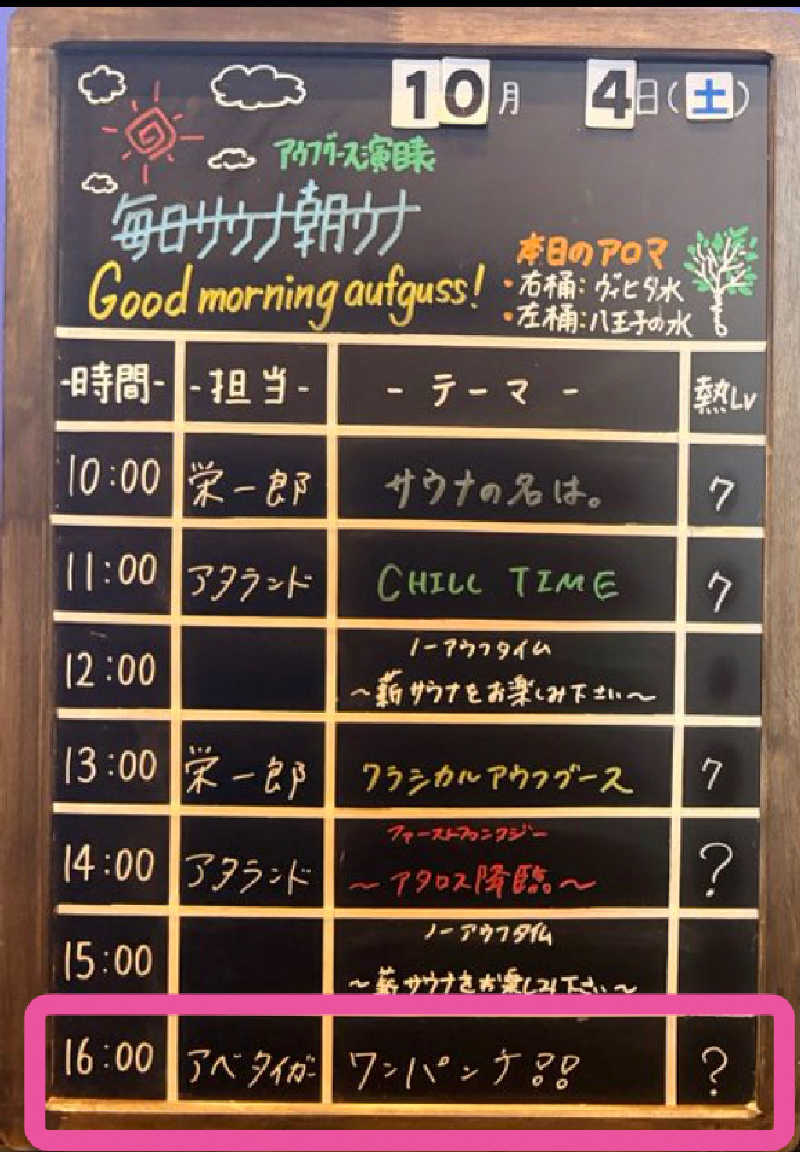 10月 4日(土)
アウフグース演目表
毎日サウナ朝ウナ
Good morning aufguss!
本日のアロマ
・右桶:ヴィヒタ水
・左桶:八王子の水
-時間- -担当- - テーマ - 熱Lv
10:00 栄一郎 サウナの名は。 7
11:00 アタランド CHILL TIME 7
ノーアウフタイム
12:00 〜薪サウナをお楽しみ下さい〜
13:00 栄一郎 クラシカルアウフグース 7
ファーストファンタジー
14:00 アタランド 〜アタロス降臨〜 ?
ノーアウフタイム
15:00 〜薪サウナをお楽しみ下さい〜
16:00 アベタイガー ワンパンチ?? ?